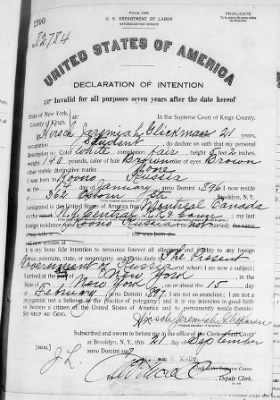 TRIPLICATE
U. S. DEPARTMENT OF LABOR
NATURALIZATION SERVICE
UNITED STATES OF AMERICA
DECLARATION OF INTENTION
Invalid for all purposes seven years after the date hereof
State of New York,
County of Kings,
In the Supreme Court of Kings County.
I, Hirsch Jeremiah Glickman, aged 21 years,
occupation Student, do declare on oath that my personal
description is: Color White, complexion fair, height 5 feet 2 inches,
weight 140 pounds, color of hair Brown, color of eyes Brown
other visible distinctive marks None
I was born in Kovno Russia
on the day of January, anno Domini; I now reside
at 362 Osborn St
I emigrated to the United States of America from Montreal Canada
my last
foreign residence was
It is my bona fide intention to renounce forever all allegiance and fidelity to any foreign
prince, potentate, state, or sovereignty, and particularly to The Present
Government of Russia, of whom I am now a subject;
I arrived at the port of
State of New York, on or about the 15 day
of February, anno Domini; I am not an anarchist; I am not a
polygamist nor a believer in the practice of polygamy; and it is my intention in good faith
to become a citizen of the United States of America and to permanently reside therein:
SO HELP ME GOD.
Hirsch Jeremiah Glickman
Subscribed and sworn to before me in the office of the Clerk of said Court
at Brooklyn, N. Y., this 21 day of September
[SEAL] anno Domini
Clerk of the Supreme Court.
By Deputy Clerk.